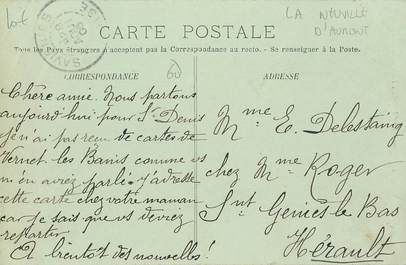 lot
LA NEUVILLE
D'AUMONT
CARTE POSTALE
Tous les Pays étrangers n'acceptent pas la Correspondance au recto. - Se renseigner à la Poste.
CORRESPONDANCE
60
ADRESSE
Chère amie. Nous partons
aujourd'hui pour St Denis
je n'ai pas reçu de cartes de
Vernet les Bains comme vs
m'en aviez parlé. J'adresse
cette carte chez votre maman
car je sais que vs devriez
repartir
A bientôt des nouvelles!
Mme E. Delestaing
chez Mme Roger
Snt Geniès le Bas
Hérault